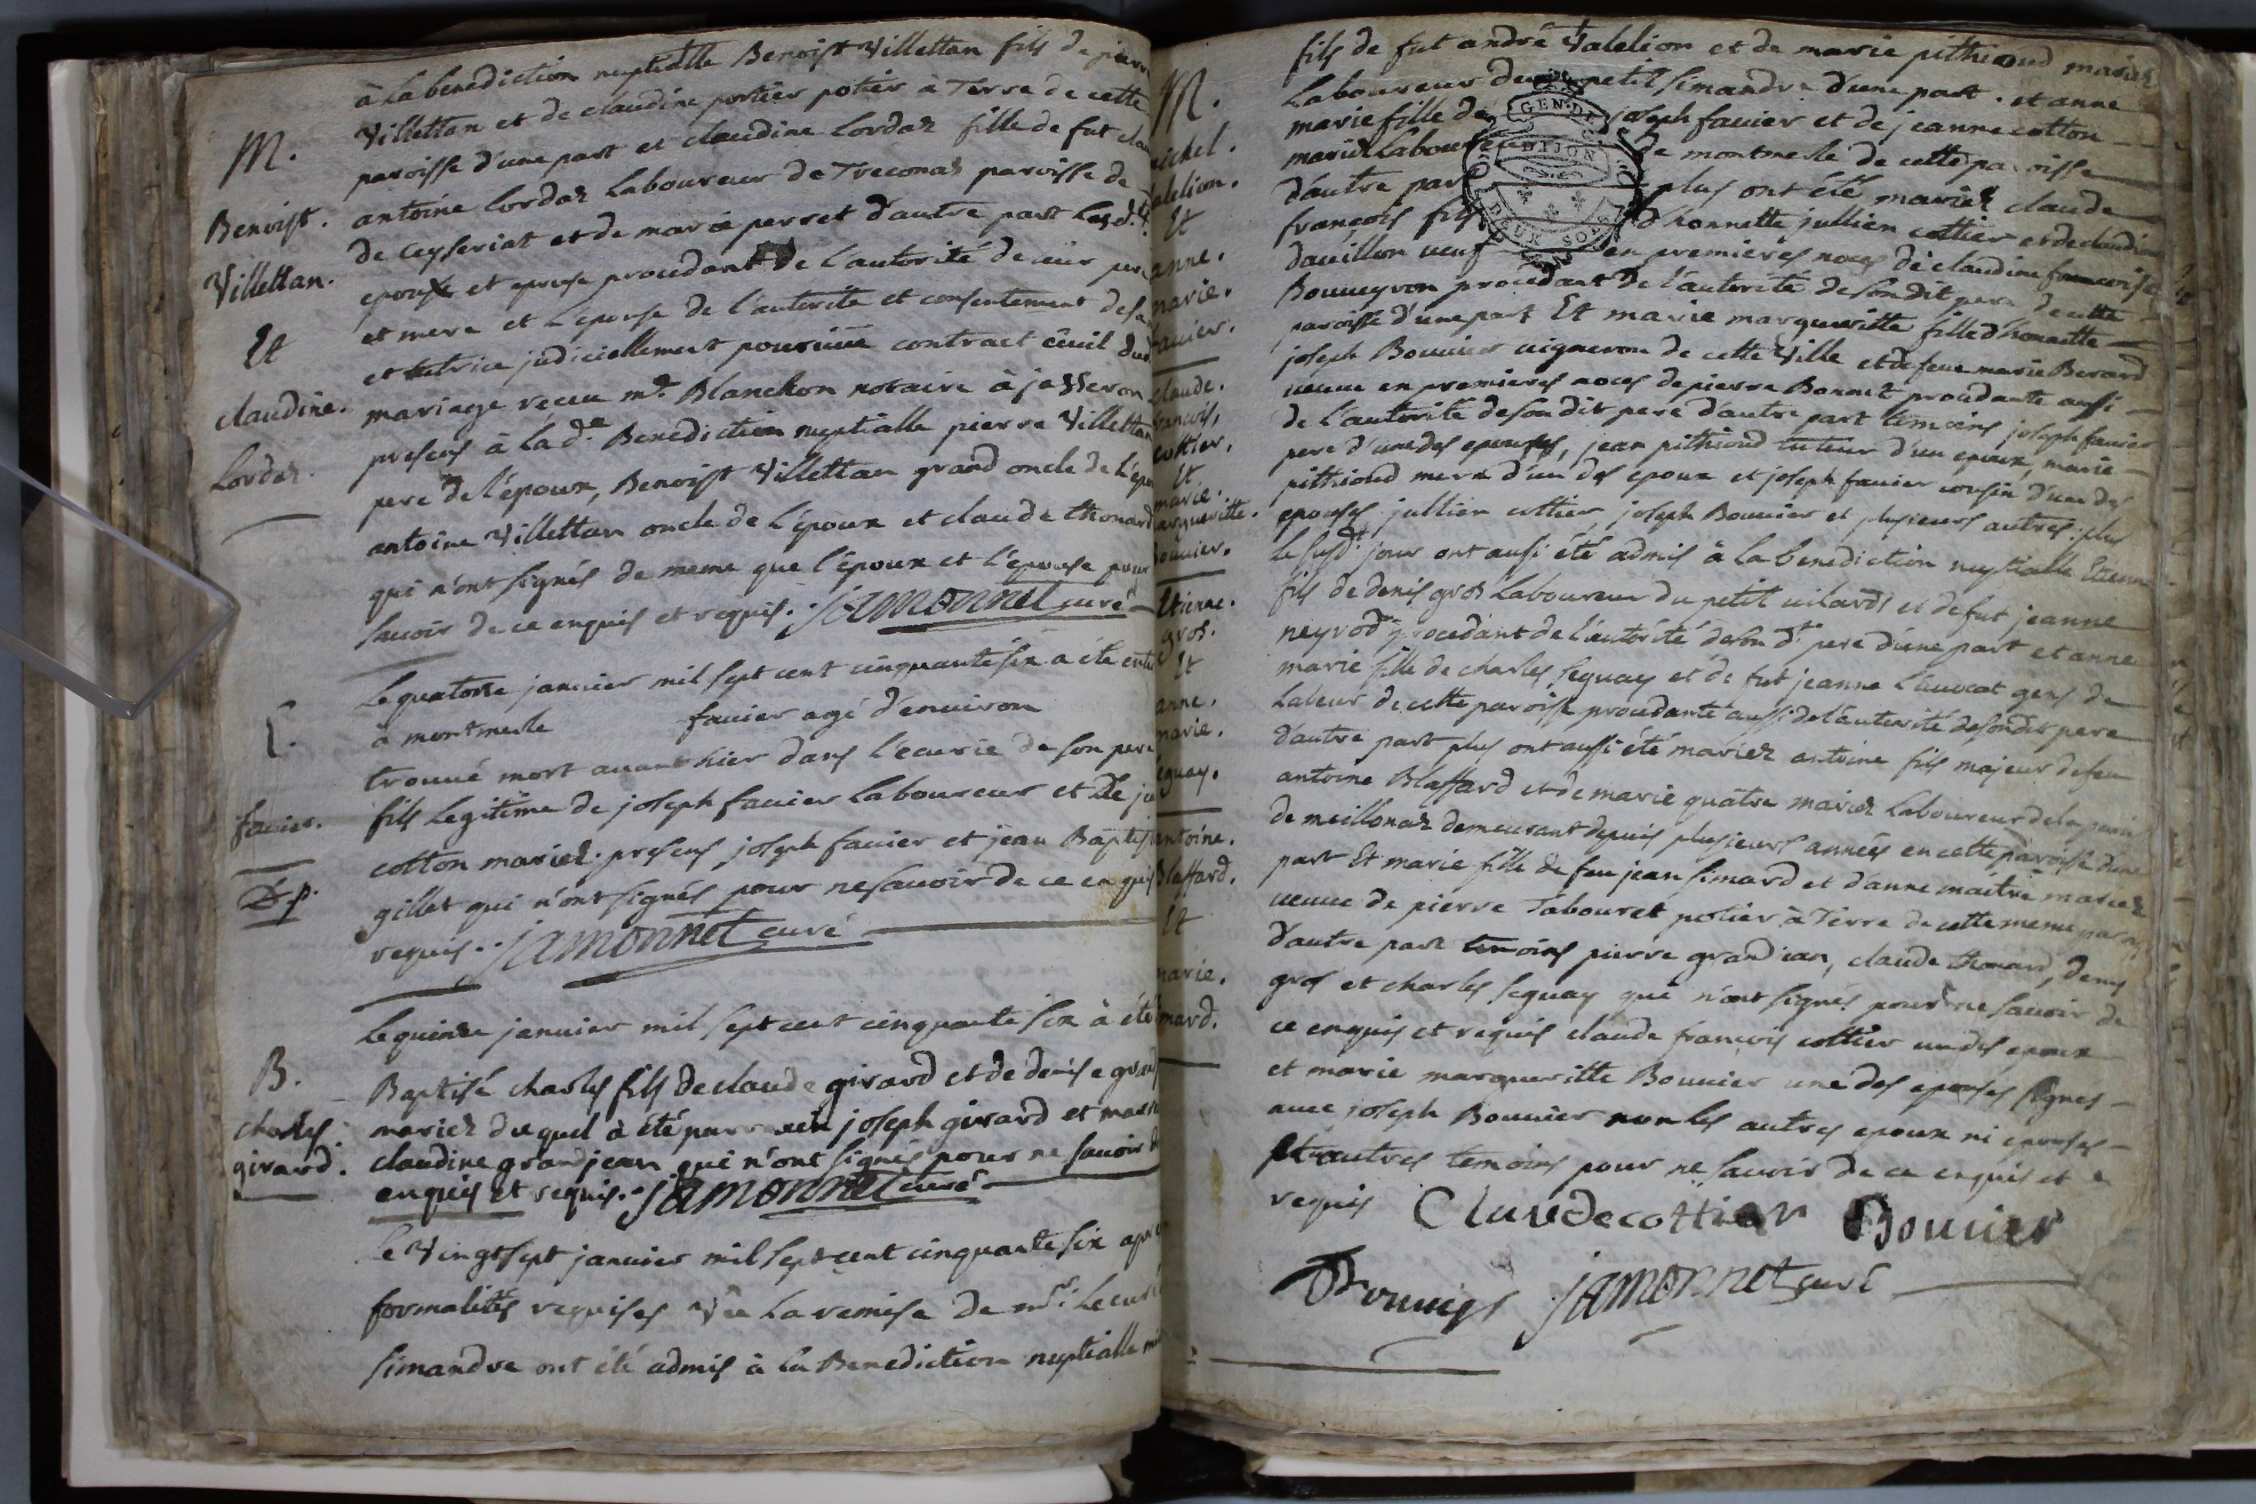 à la benediction nuptialle Benoist Villettan fils de pierre
Villettan et de claudine portier potier à Terre de cette
paroisse d'une part et claudine Lordaz fille de fut
antoine Lordaz Laboureur de Treconaz paroisse de
de ceyseriat et de marie perret d'autre part
epoux et epouse procedant de l'autorité de leur pere
et mere et L'epouse de l'autorité et consentement de sa
et tutrice judiciellement contract civil dud
mariage receu me Blanchon notaire à jasseron
presens à la de Benediction nuptialle pierre Villettan
pere de l'époux, Benoist Villettan grand oncle de L'epoux
antoine Villettan oncle de L'époux et claude thomard
qui n'ont signés de meme que l'époux et l'épouse pour
savoir de ce enquis et requis. jamonnet curé
M.
Benoist.
Villettan.
Et
claudine.
Lordaz.
Le quatorze janvier mil sept cent cinquante six a été enterré
à montmerle favier agé d'environ
trouvé mort avant hier dans l'ecurie de son pere
fils Legitime de joseph favier Laboureur et de
cotton mariez. presens joseph favier et jean Baptiste
gillet qui n'ont signés pour ne savoir de ce enquis
requis. jamonnet curé
favier.
Le quinze janvier mil sept cent cinquante six à été
Baptisé charles fils de claude girard et de denise grand
mariez duquel à été parrein joseph girard et marreine
claudine grandjean qui n'ont signés pour ne savoir de
enquis et requis. jamonnet curé
B.
charles.
girard.
Le Vingt sept janvier mil sept cent cinquante six
formalités requises Vûe la remise de mr Le curé
simandre ont été admis à la Benediction nuptialle
fils de fut andré Valelion et de marie pithioud mariez
Laboureur de petit simandre d'une part. et anne
marie fille de joseph favier et de jeanne cotton
mariez Laboureur de montmerle de cette paroisse
d'autre part plus ont été mariez claude
francois fils d'honnette jullien cottier et de claudine
davillon veuf en premieres noces de claudine francoise
Bouveyron procedant de l'autorité de son dit pere de cette
paroisse d'une part Et marie margueritte fille d'honnette
joseph Bouvier vigneron de cette Ville et de feue marie Berard
veuve en premieres noces de pierre Bonnet procedante aussi
de l'autorité de son dit pere d'autre part temoins joseph favier
pere d'une des epouses, jean pithioud tuteur d'un epoux, marie
pithioud mere d'un des epoux et joseph favier cousin d'une des
epouses jullien cottier, joseph Bouvier et plusieurs autres. plus
le susdt jour ont aussi été admis à la benediction nuptialle Etienne
fils de denis gros Laboureur du petit vilards et de fut jeanne
neyrod procedant de l'autorité de son dt pere d'une part et anne
marie fille de charles seguay et de fut jeanne L'auvocat gens de
Labeur de cette paroisse procedante aussi de l'autorité de son dit pere
d'autre part plus ont aussi été mariez antoine fils majeur de feu
antoine Blaffard et de marie quatre mariez Laboureur de la paroisse
de meillonaz demeurant depuis plusieurs années en cette paroisse d'une
part Et marie fille de feu jean simard et d'anne maitre mariez
veuve de pierre Tabouret potier à Terre de cette meme paroisse
d'autre part temoins pierre grandian, claude thomard, denis
gros et charles seguay qui n'ont signés pour ne savoir de
ce enquis et requis claude francois cottier un des epoux
et marie margueritte Bouvier une des epouses signes
avec joseph Bouvier non les autres epoux ni epouses
ni autres temoins pour ne savoir de ce enquis et
requis Claudecottier Bouvier
Bouvier jamonnet curé
M.
michel.
valelion.
Et
anne.
marie.
favier.
claude.
francois.
cottier.
Et
marie.
margueritte.
Bouvier.
Etienne.
gros.
Et
anne.
marie.
seguay.
antoine.
Blaffard.
Et
marie.
simard.
GEN. DE
DIJON
DEUX SOLS